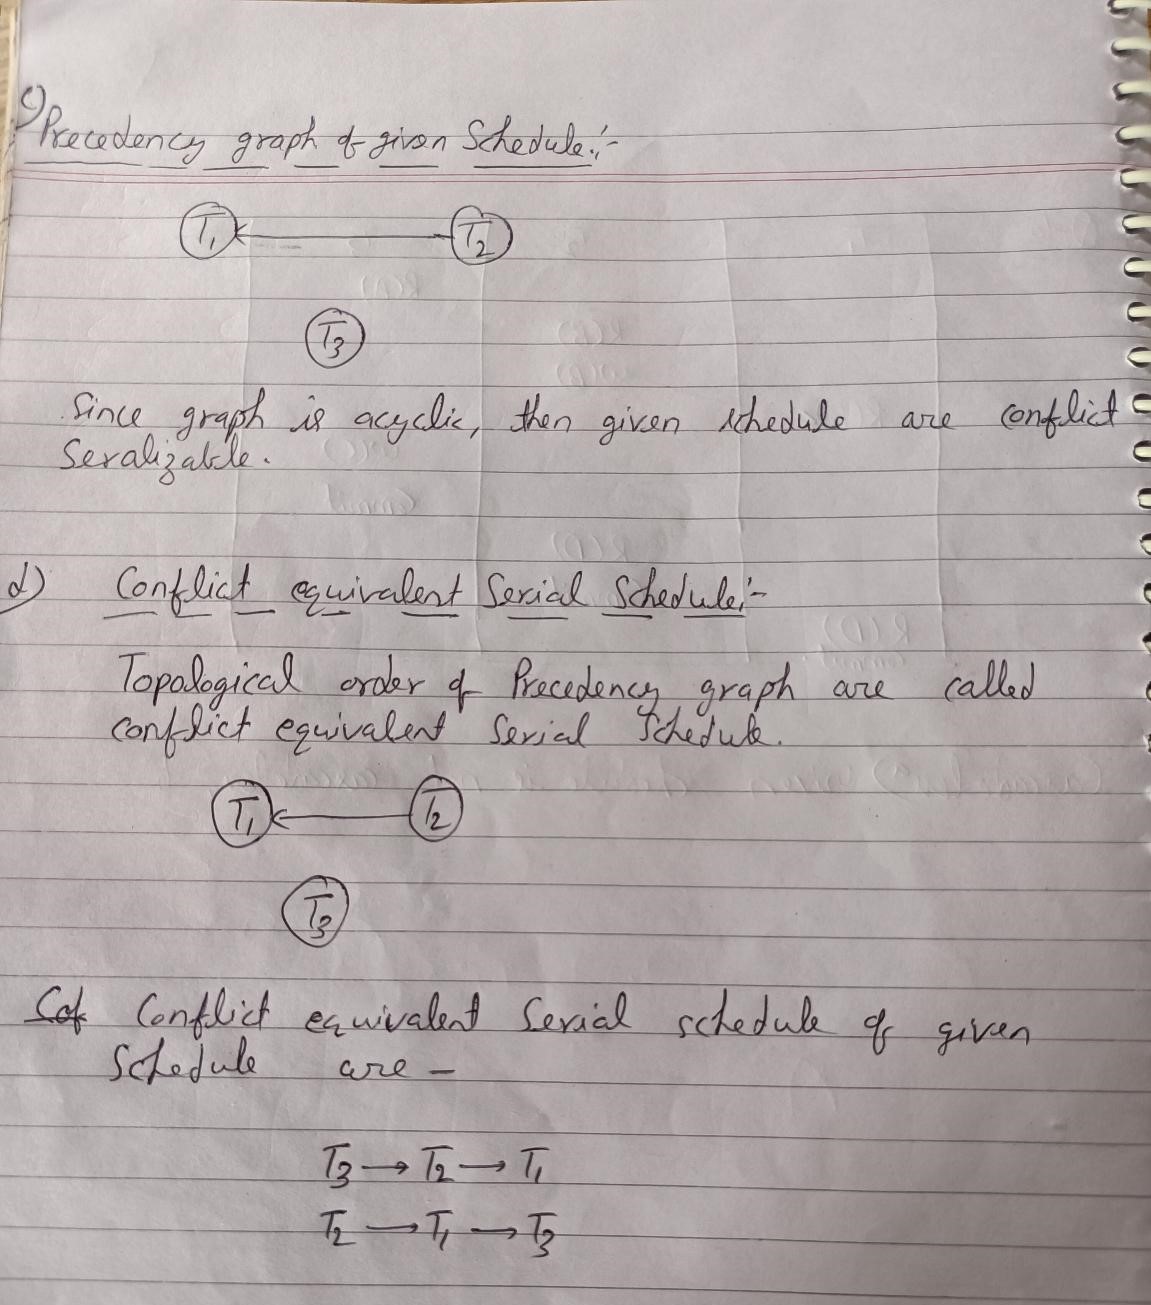 c) Precedency graph of given Schedule:-
T1 T2
T3
Since graph is acyclic, then given schedule are conflict
Seralizable.
d) Conflict equivalent Serial Schedule:-
Topological order of Precedency graph are called
conflict equivalent Serial Schedule.
T1 T2
T3
Conflict equivalent Serial schedule of given
Schedule are -
T3 → T2 → T1
T2 → T1 → T3